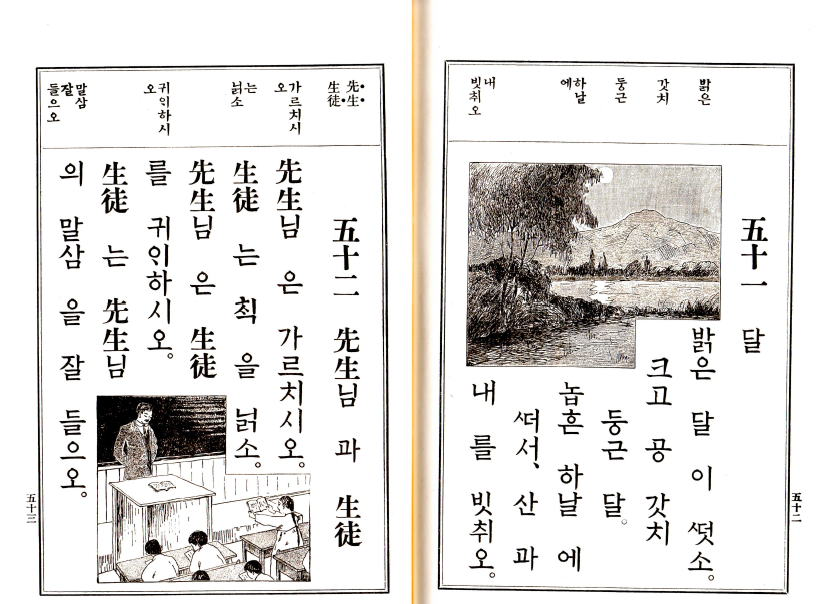 밝은
갓치
둥근
하날
에
내
빗취오
五十一 달
밝은 달 이 ᄯᅥᆺ소。
크고 공 갓치
둥근 달。
놉흔 하날 에
ᄯᅥ서、산 과
내 를 빗취오。
五十二
先生
生徒
가르치시
오
는
넑소
귀ᄋᆡ하시
오
말삼
잘
들으오
五十二 先生님 과 生徒
先生님 은 가르치시오。
生徒 는 ᄎᆡᆨ 을 넑소。
先生님 은 生徒
를 귀ᄋᆡ하시오。
生徒 는 先生님
의 말삼 을 잘 들으오。
五十三